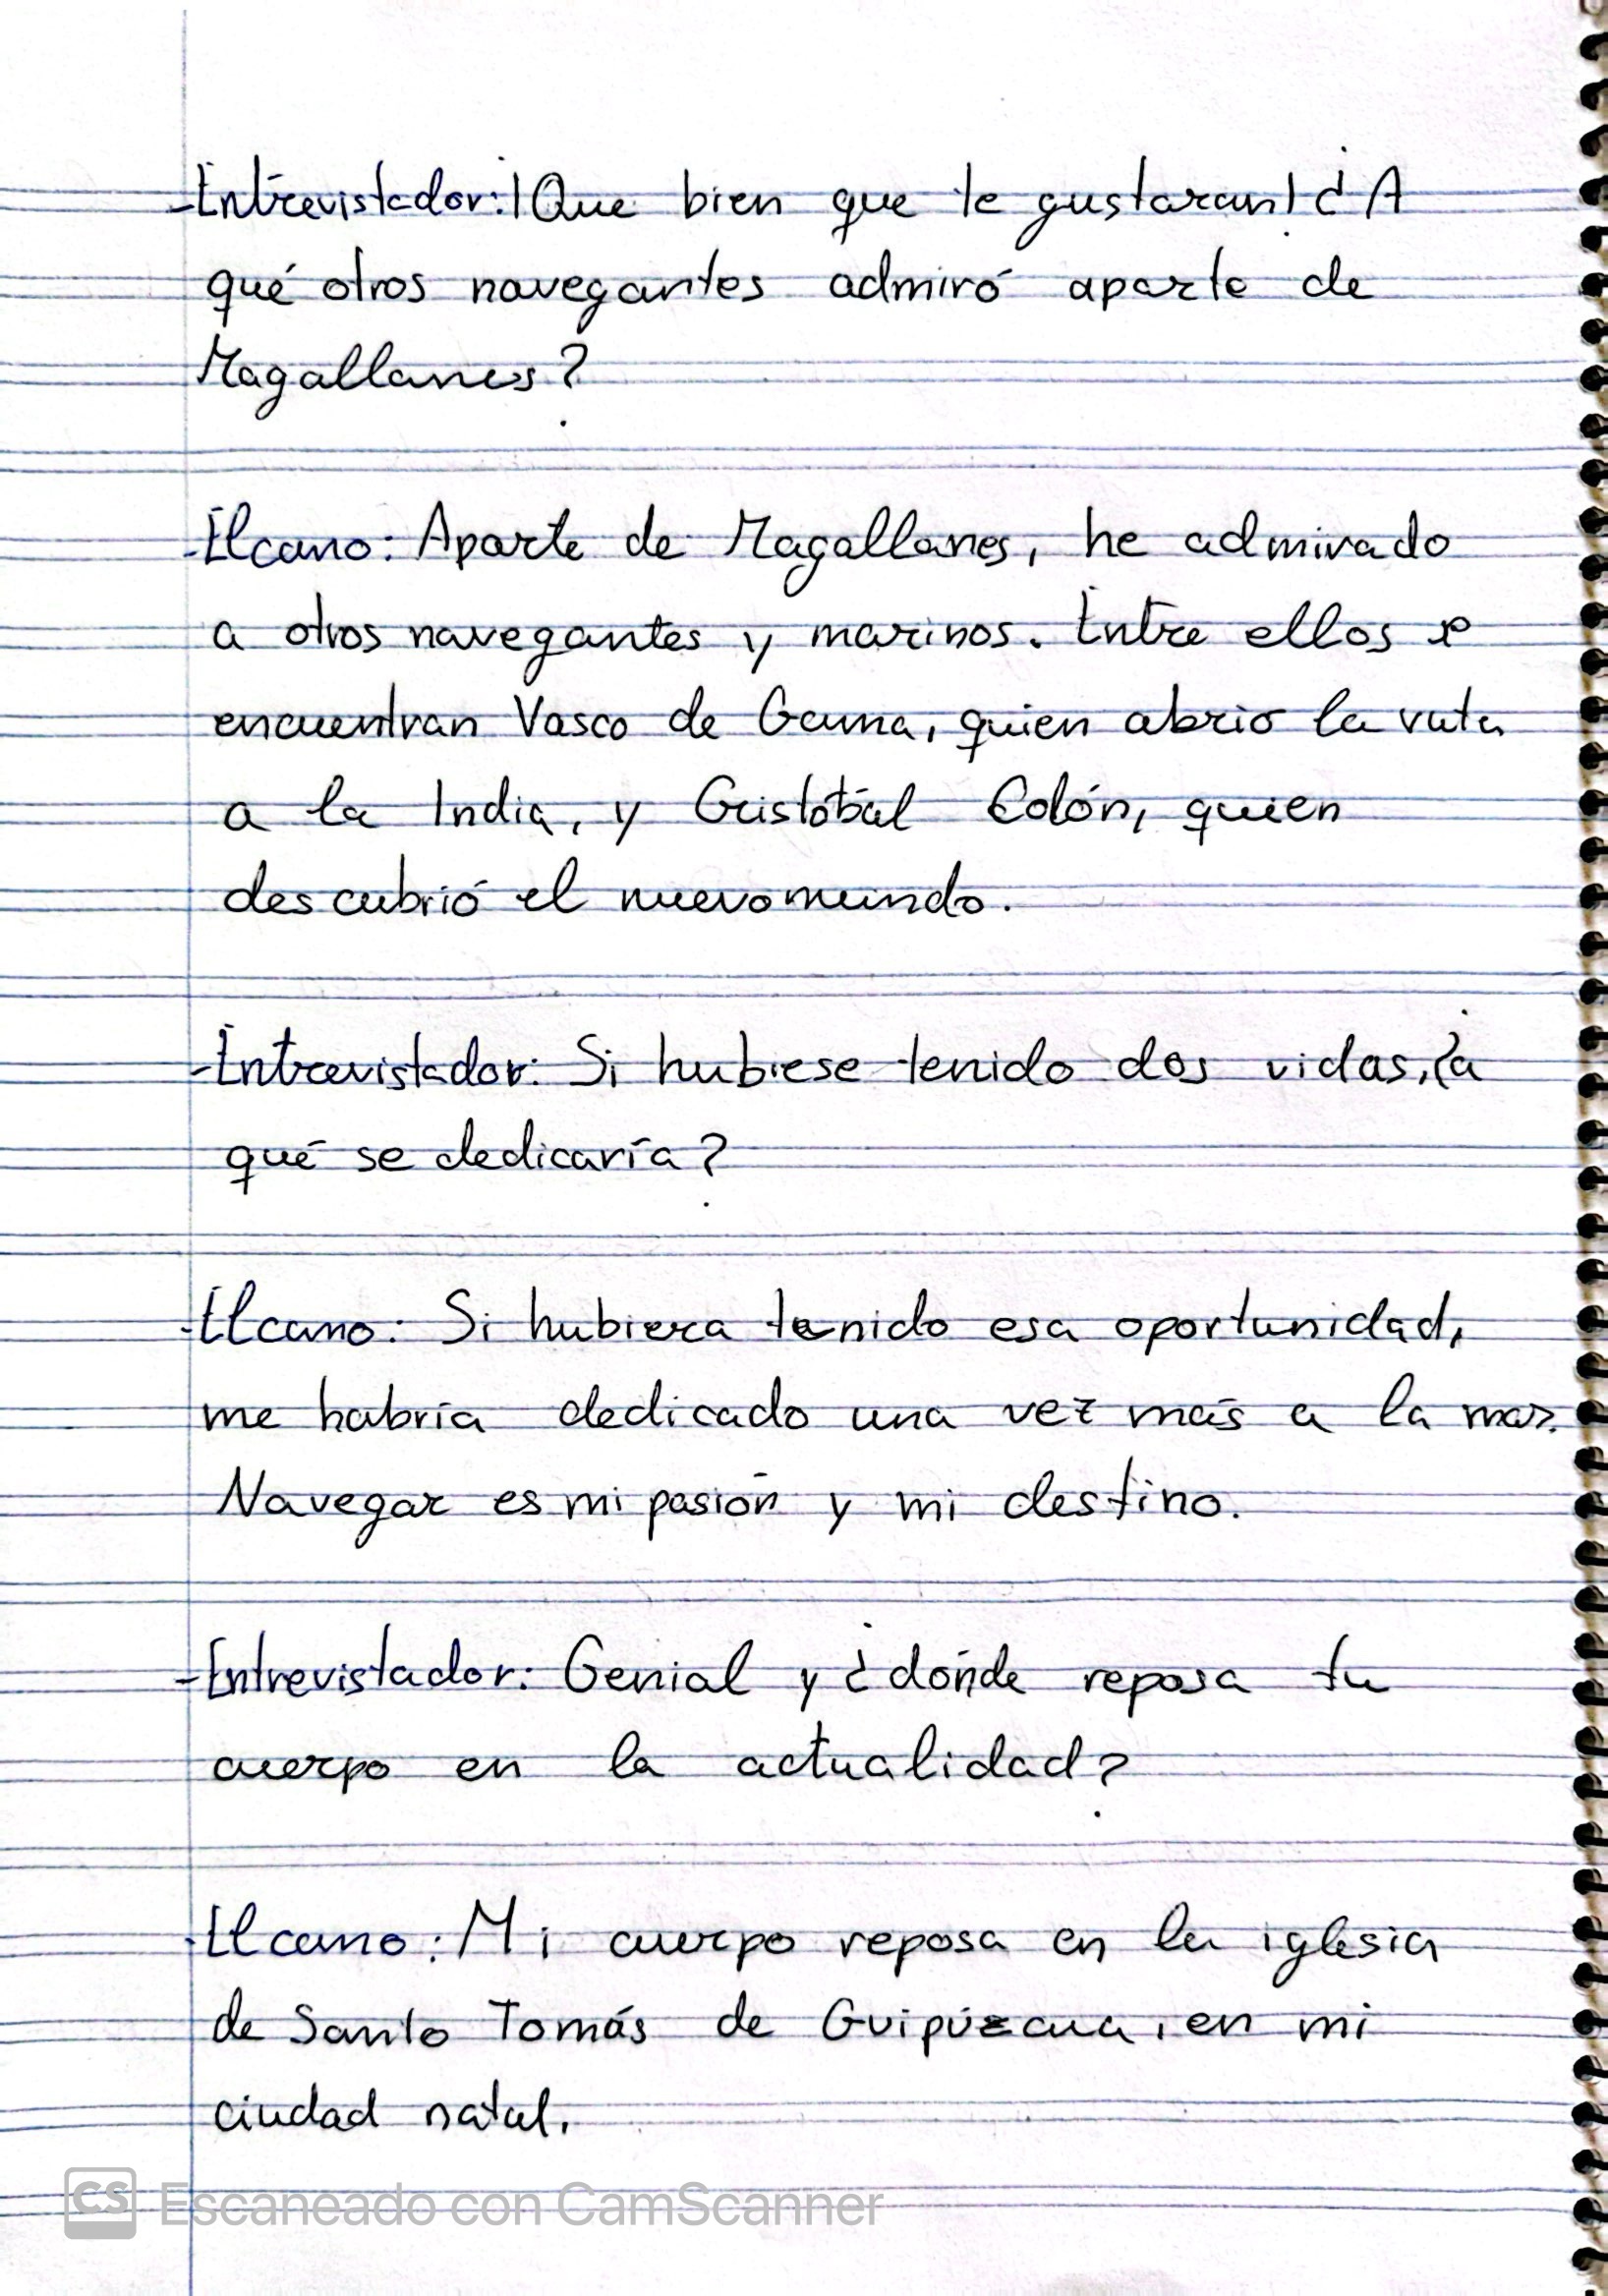 -Entrevistador: ¡Que bien que te gustaran! ¿A
qué otros navegantes admiró aparte de
Magallanes?
-Elcano: Aparte de Magallanes, he admirado
a otros navegantes y marinos. Entre ellos se
encuentran Vasco de Gama, quien abrio la ruta
a la India, y Cristóbal Colón, quien
descubrió el nuevo mundo.
-Entrevistador: Si hubiese tenido dos vidas, ¿a
qué se dedicaría?
-Elcano: Si hubiera tenido esa oportunidad,
me habría dedicado una vez más a la mar.
Navegar es mi pasión y mi destino.
-Entrevistador: Genial y ¿dónde reposa tu
cuerpo en la actualidad?
-Elcano: Mi cuerpo reposa en la iglesia
de Santo Tomás de Guipúzcua, en mi
ciudad natal.
CS Escaneado con CamScanner